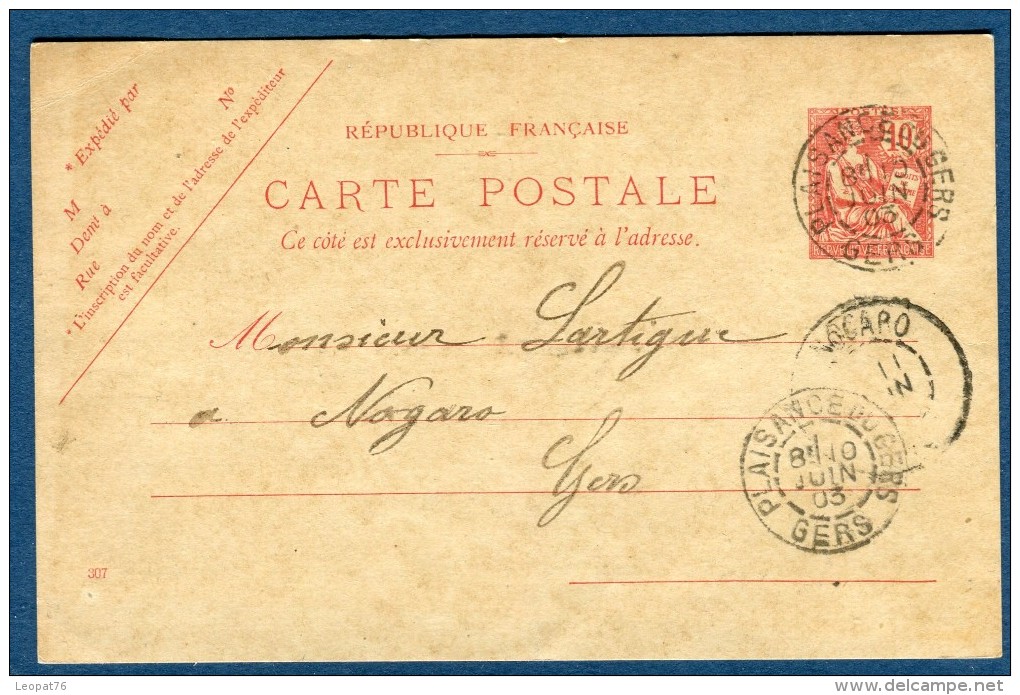 * Expédié par
M
Demt à
Rue No
* L'inscription du nom et de l'adresse de l'expéditeur
est facultative.
RÉPUBLIQUE FRANÇAISE
CARTE POSTALE
Ce côté est exclusivement réservé à l'adresse.
POSTES
10
PLAISANCE DU GERS
8E 10
JUIN
03
GERS
RÉPUBLIQUE FRANÇAISE
Monsieur Lartigue
NOGARO
11
a Nogaro
PLAISANCE DU GERS
8E 10
JUIN
03
GERS
Gers
307
Leopat76
delcampe.net